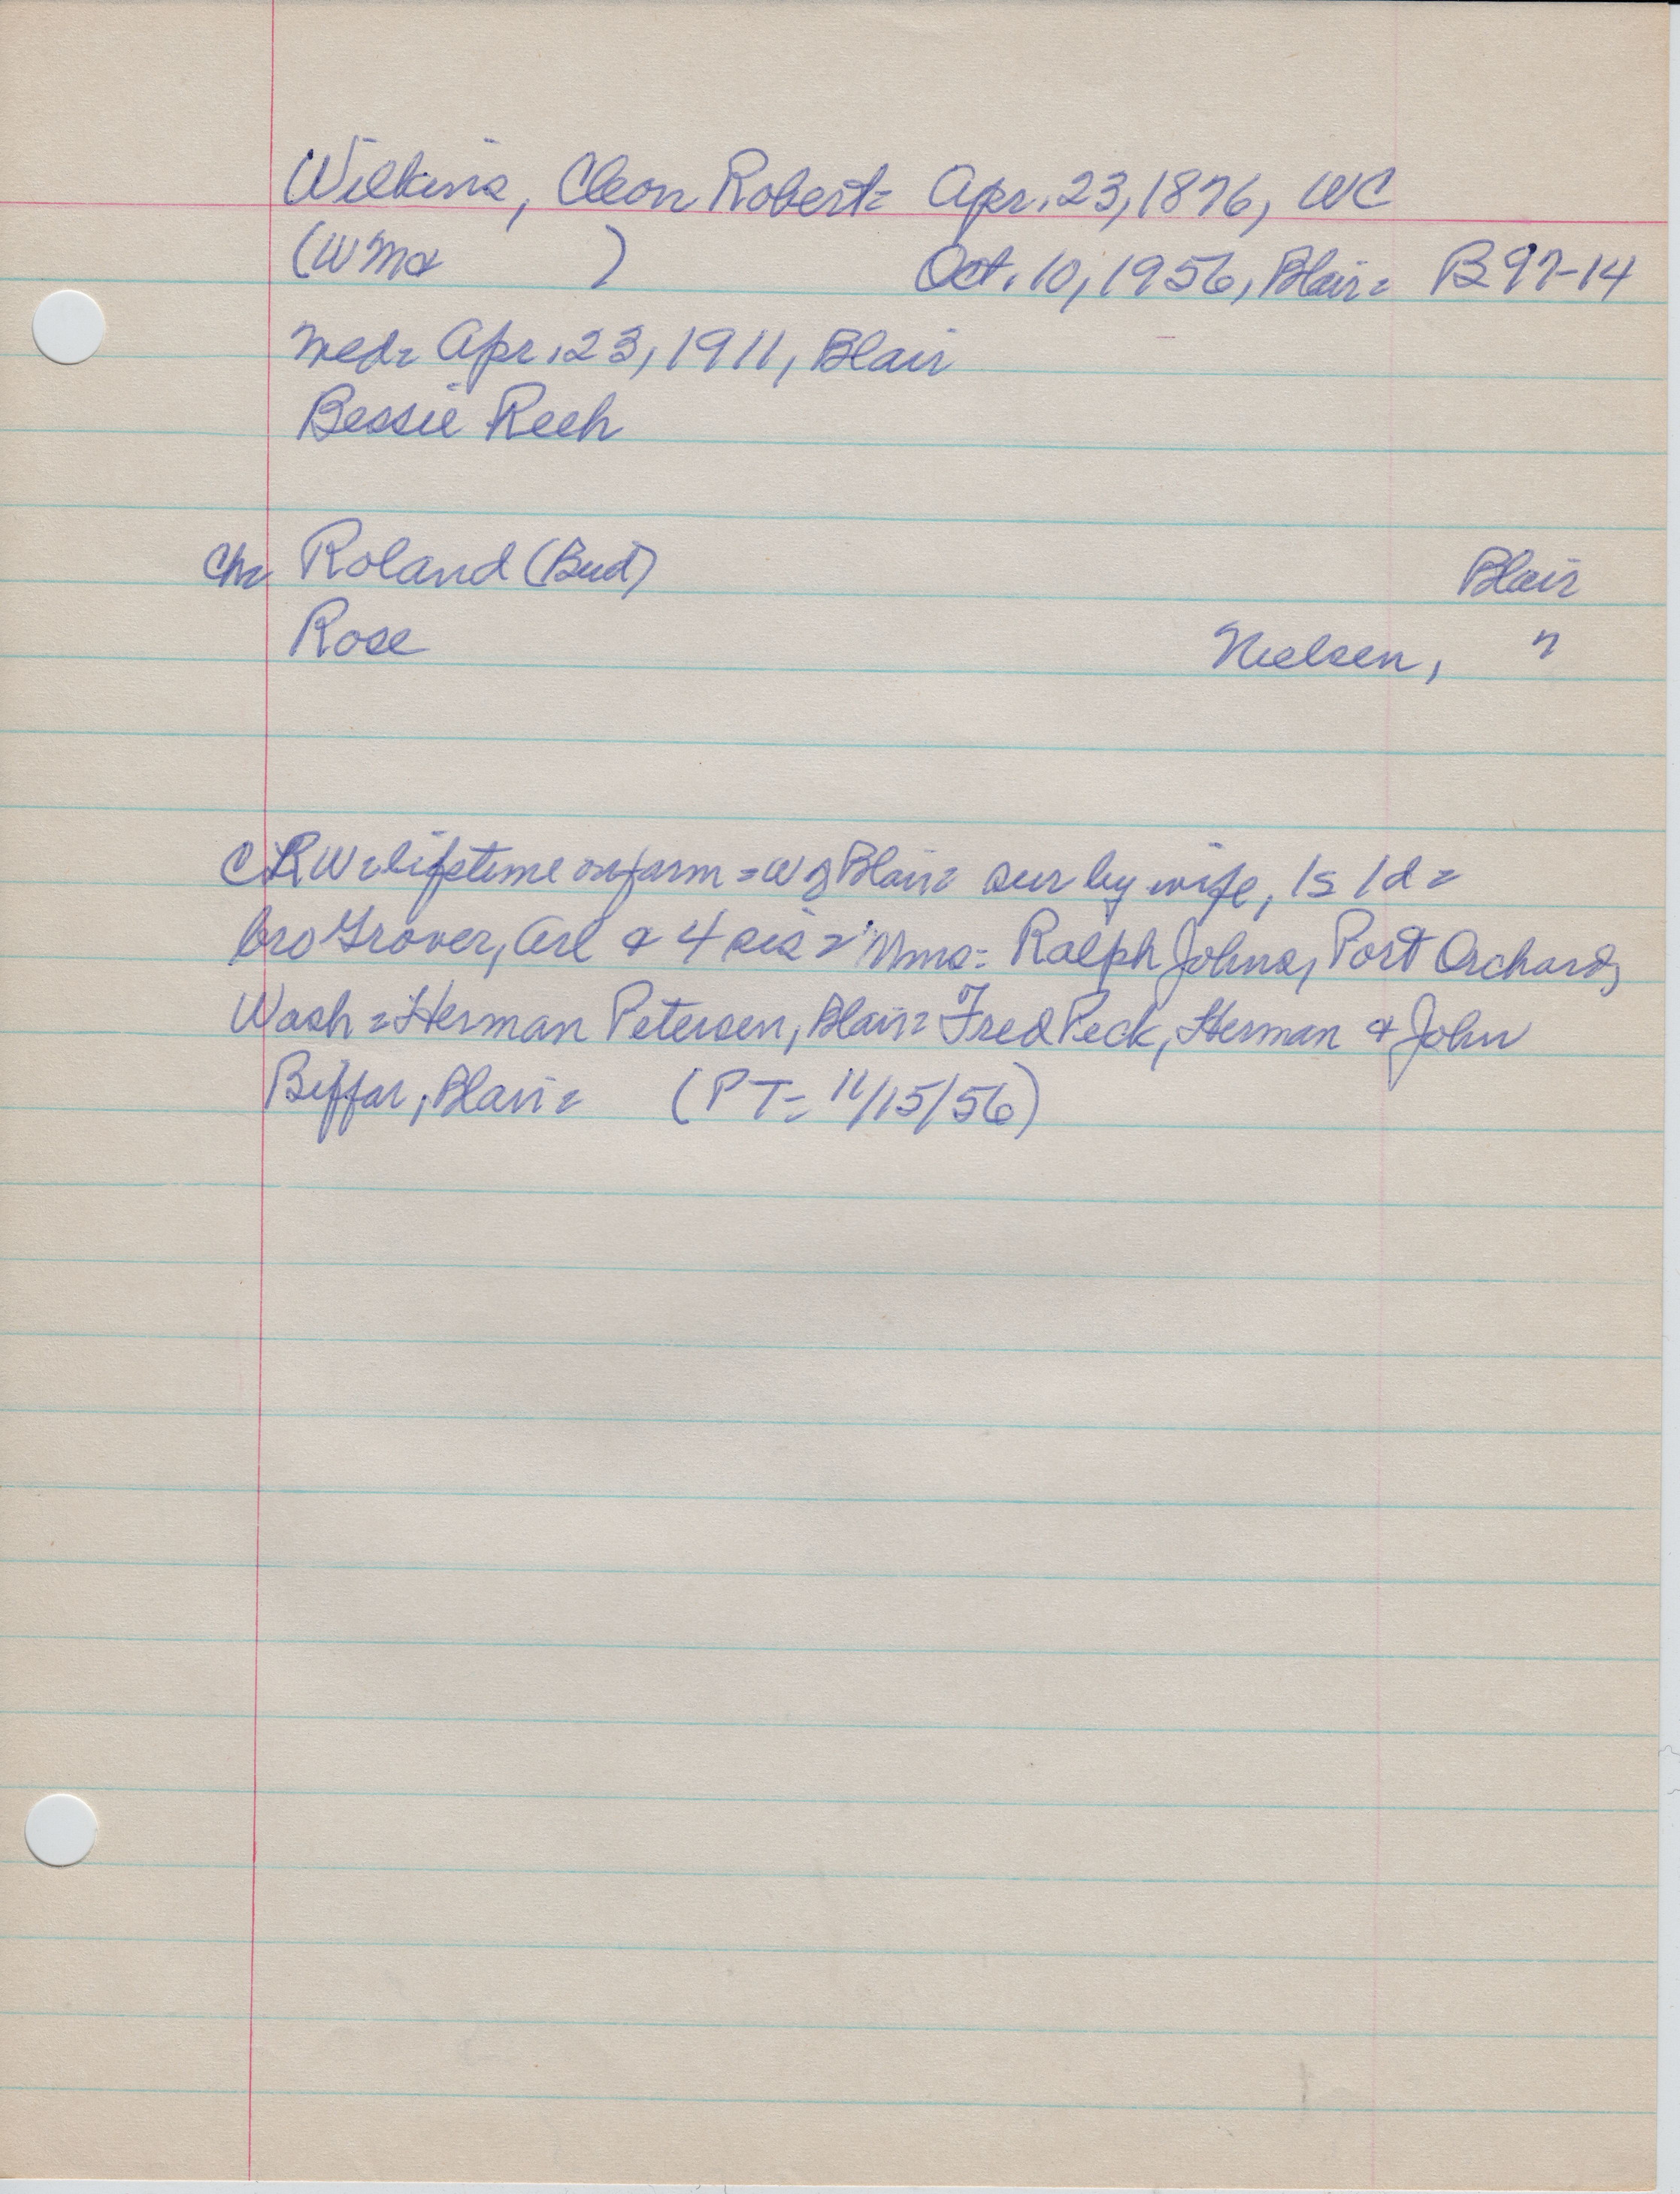 Wilkins, Cleon Robert= Apr. 23, 1876, WC
(Wm & ) Oct. 10, 1956, Blair= B97-14
med= Apr. 23, 1911, Blair
Bessie Reeh
Ch= Roland (Bud) Blair
Rose Nielsen, "
CRW=lifetime on farm = w of Blair= sur by wife, 1s 1d=
bro Grover, Arl & 4 sis= Mms= Ralph Johns, Port Orchard,
Wash=Herman Petersen, Blair= Fred Peck, Herman & John
Biffar, Blair= (PT= 11/15/56)